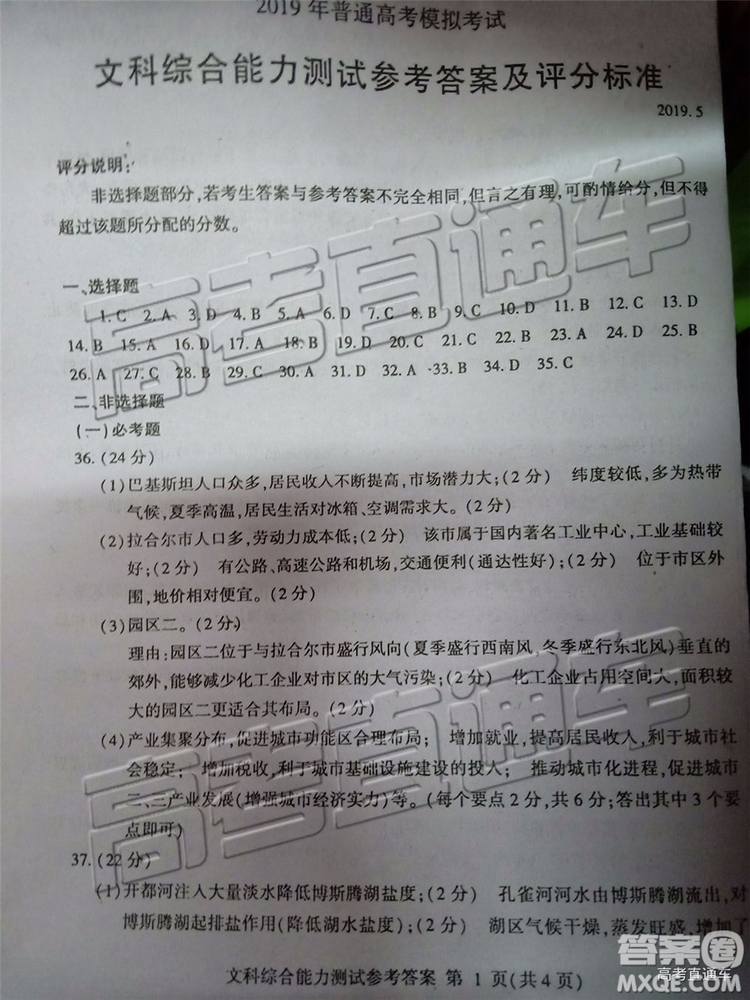 2019 年普通高考模拟考试
文科综合能力测试参考答案及评分标准
2019.5
评分说明:
非选择题部分,若考生答案与参考答案不完全相同,但言之有理,可酌情给分,但不得
超过该题所分配的分数。
一、选择题
1. C 2. A 3. D 4. B 5. A 6. D 7. C 8. B 9. C 10. D 11. B 12. C 13. D
14. B 15. A 16. D 17. A 18. B 19. D 20. C 21. C 22. B 23. A 24. D 25. B
26. A 27. C 28. B 29. C 30. A 31. D 32. A 33. B 34. D 35. C
二、非选择题
(一)必考题
36. (24 分)
(1)巴基斯坦人口众多,居民收入不断提高,市场潜力大;(2 分) 纬度较低,多为热带
气候,夏季高温,居民生活对冰箱、空调需求大。(2 分)
(2)拉合尔市人口多,劳动力成本低;(2 分) 该市属于国内著名工业中心,工业基础较
好;(2 分) 有公路、高速公路和机场,交通便利(通达性好);(2 分) 位于市区外
围,地价相对便宜。(2 分)
(3)园区二。(2 分)
理由:园区二位于与拉合尔市盛行风向(夏季盛行西南风,冬季盛行东北风)垂直的
郊外,能够减少化工企业对市区的大气污染;(2 分) 化工企业占用空间大,面积较
大的园区二更适合其布局。(2 分)
(4)产业集聚分布,促进城市功能区合理布局; 增加就业,提高居民收入,利于城市社
会稳定; 增加税收,利于城市基础设施建设的投入; 推动城市化进程,促进城市
二、三产业发展(增强城市经济实力)等。(每个要点 2 分,共 6 分;答出其中 3 个要
点即可)
37. (22 分)
(1)开都河注入大量淡水降低博斯腾湖盐度;(2 分) 孔雀河河水由博斯腾湖流出,对
博斯腾湖起排盐作用(降低湖水盐度);(2 分) 湖区气候干燥,蒸发旺盛,增加了
文科综合能力测试参考答案 第 1 页(共 4 页)
高考直通车
高考直通车
答案圈
MXQE.COM
高考直通车